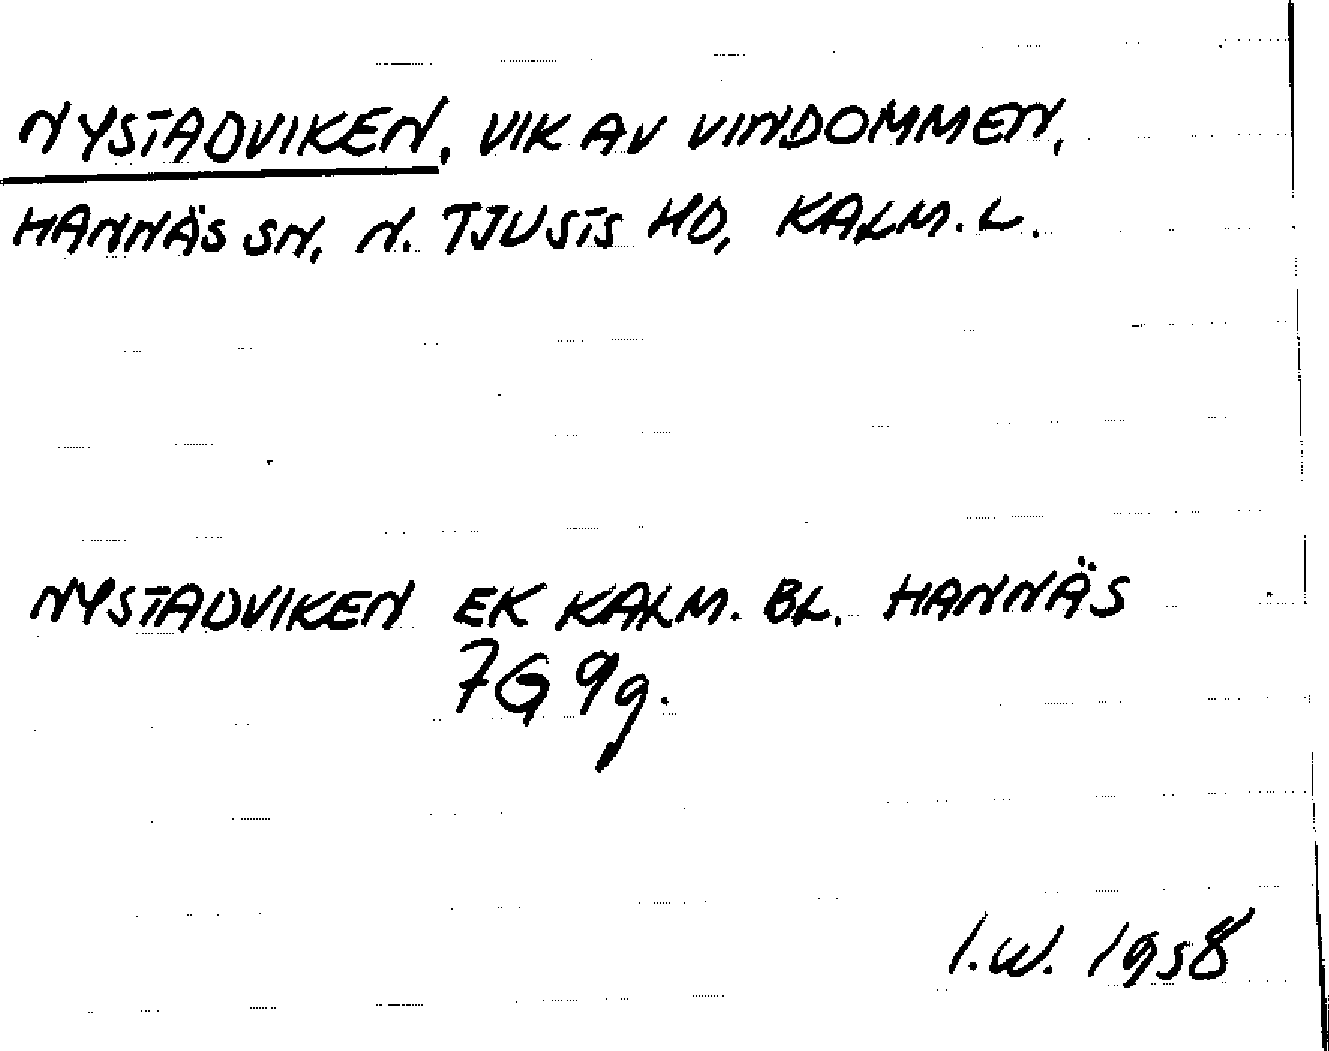 NYSTADVIKEN, VIK AV VINDOMMEN,
HANNÄS SN, N. TJUSTS HD, KALM. L.
NYSTADVIKEN EK KALM. BL. HANNÄS
7G 9g.
I.W. 1958